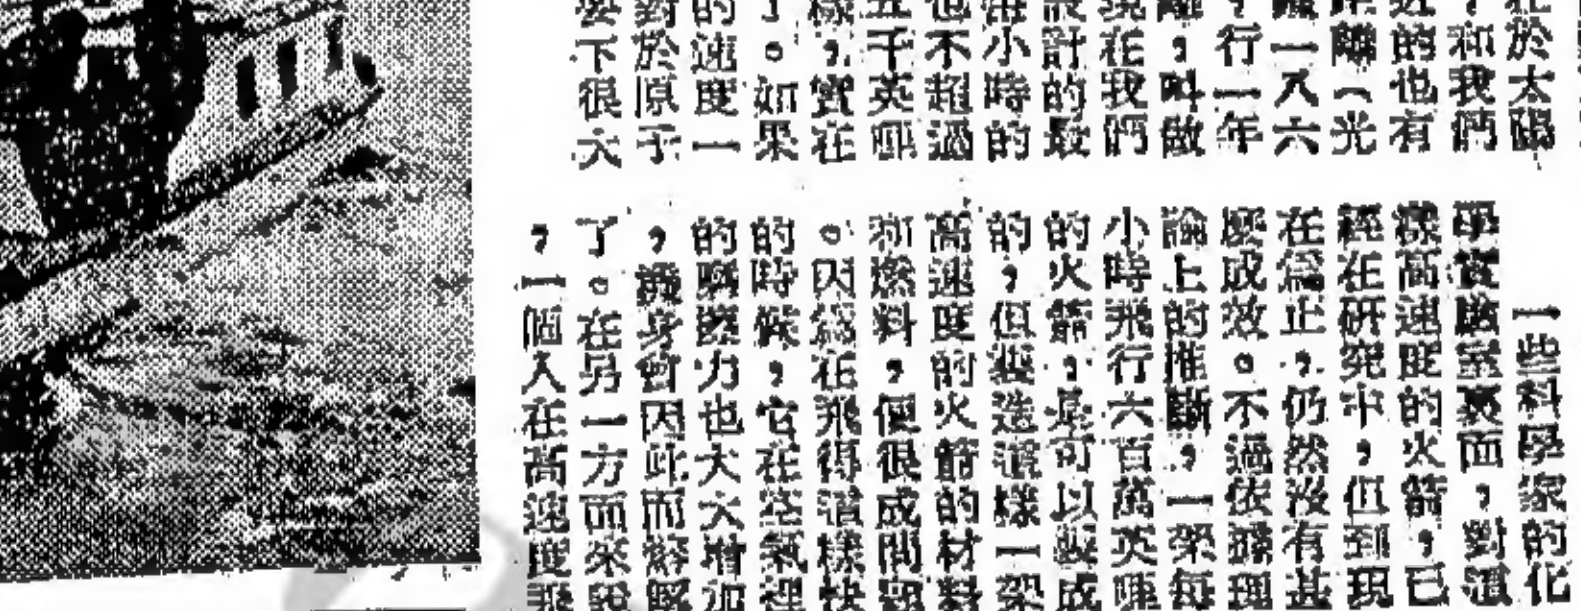 在於太陽
，和我們
近的也有
距離（光
一八六
，行一年
離，叫做
現在我們
設計的最
每小時的
也不超過
五千英哩
樣，實在
了。如果
的速度一
對於原子
要下很大
一些科學家的化
學實驗室裏面，對這
樣高速度的火箭，已
經在研究中，但到現
在爲止，仍然沒有甚
麽成效。不過依據理
論上的推斷，一架每
小時飛行六百萬英哩
的火箭，是可以製成
的，但要造這樣一架
高速度的火箭的材料
和燃料，便很成問題
。因爲在飛得這樣快
的時候，它在空氣裡
的磨擦力也大大增加
，機身會因此而溶解
了。在另一方面來說
，一個人在高速度飛